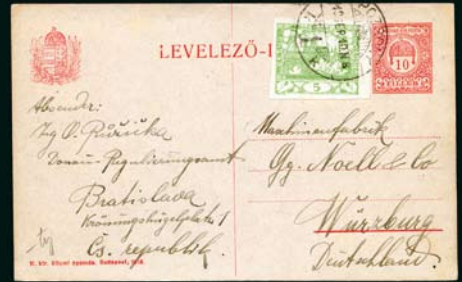 LEVELEZŐ-L
5
10
Absender:
Ing O. Růžička
Donau-Regulierungsamt
Bratislava
Krönungshügelplatz 1
Čs. republik.
Maschinenfabrik
Gg. Noell & Co
Würzburg
Deutschland.
M. kir. állami nyomda. Budapest, 1918.